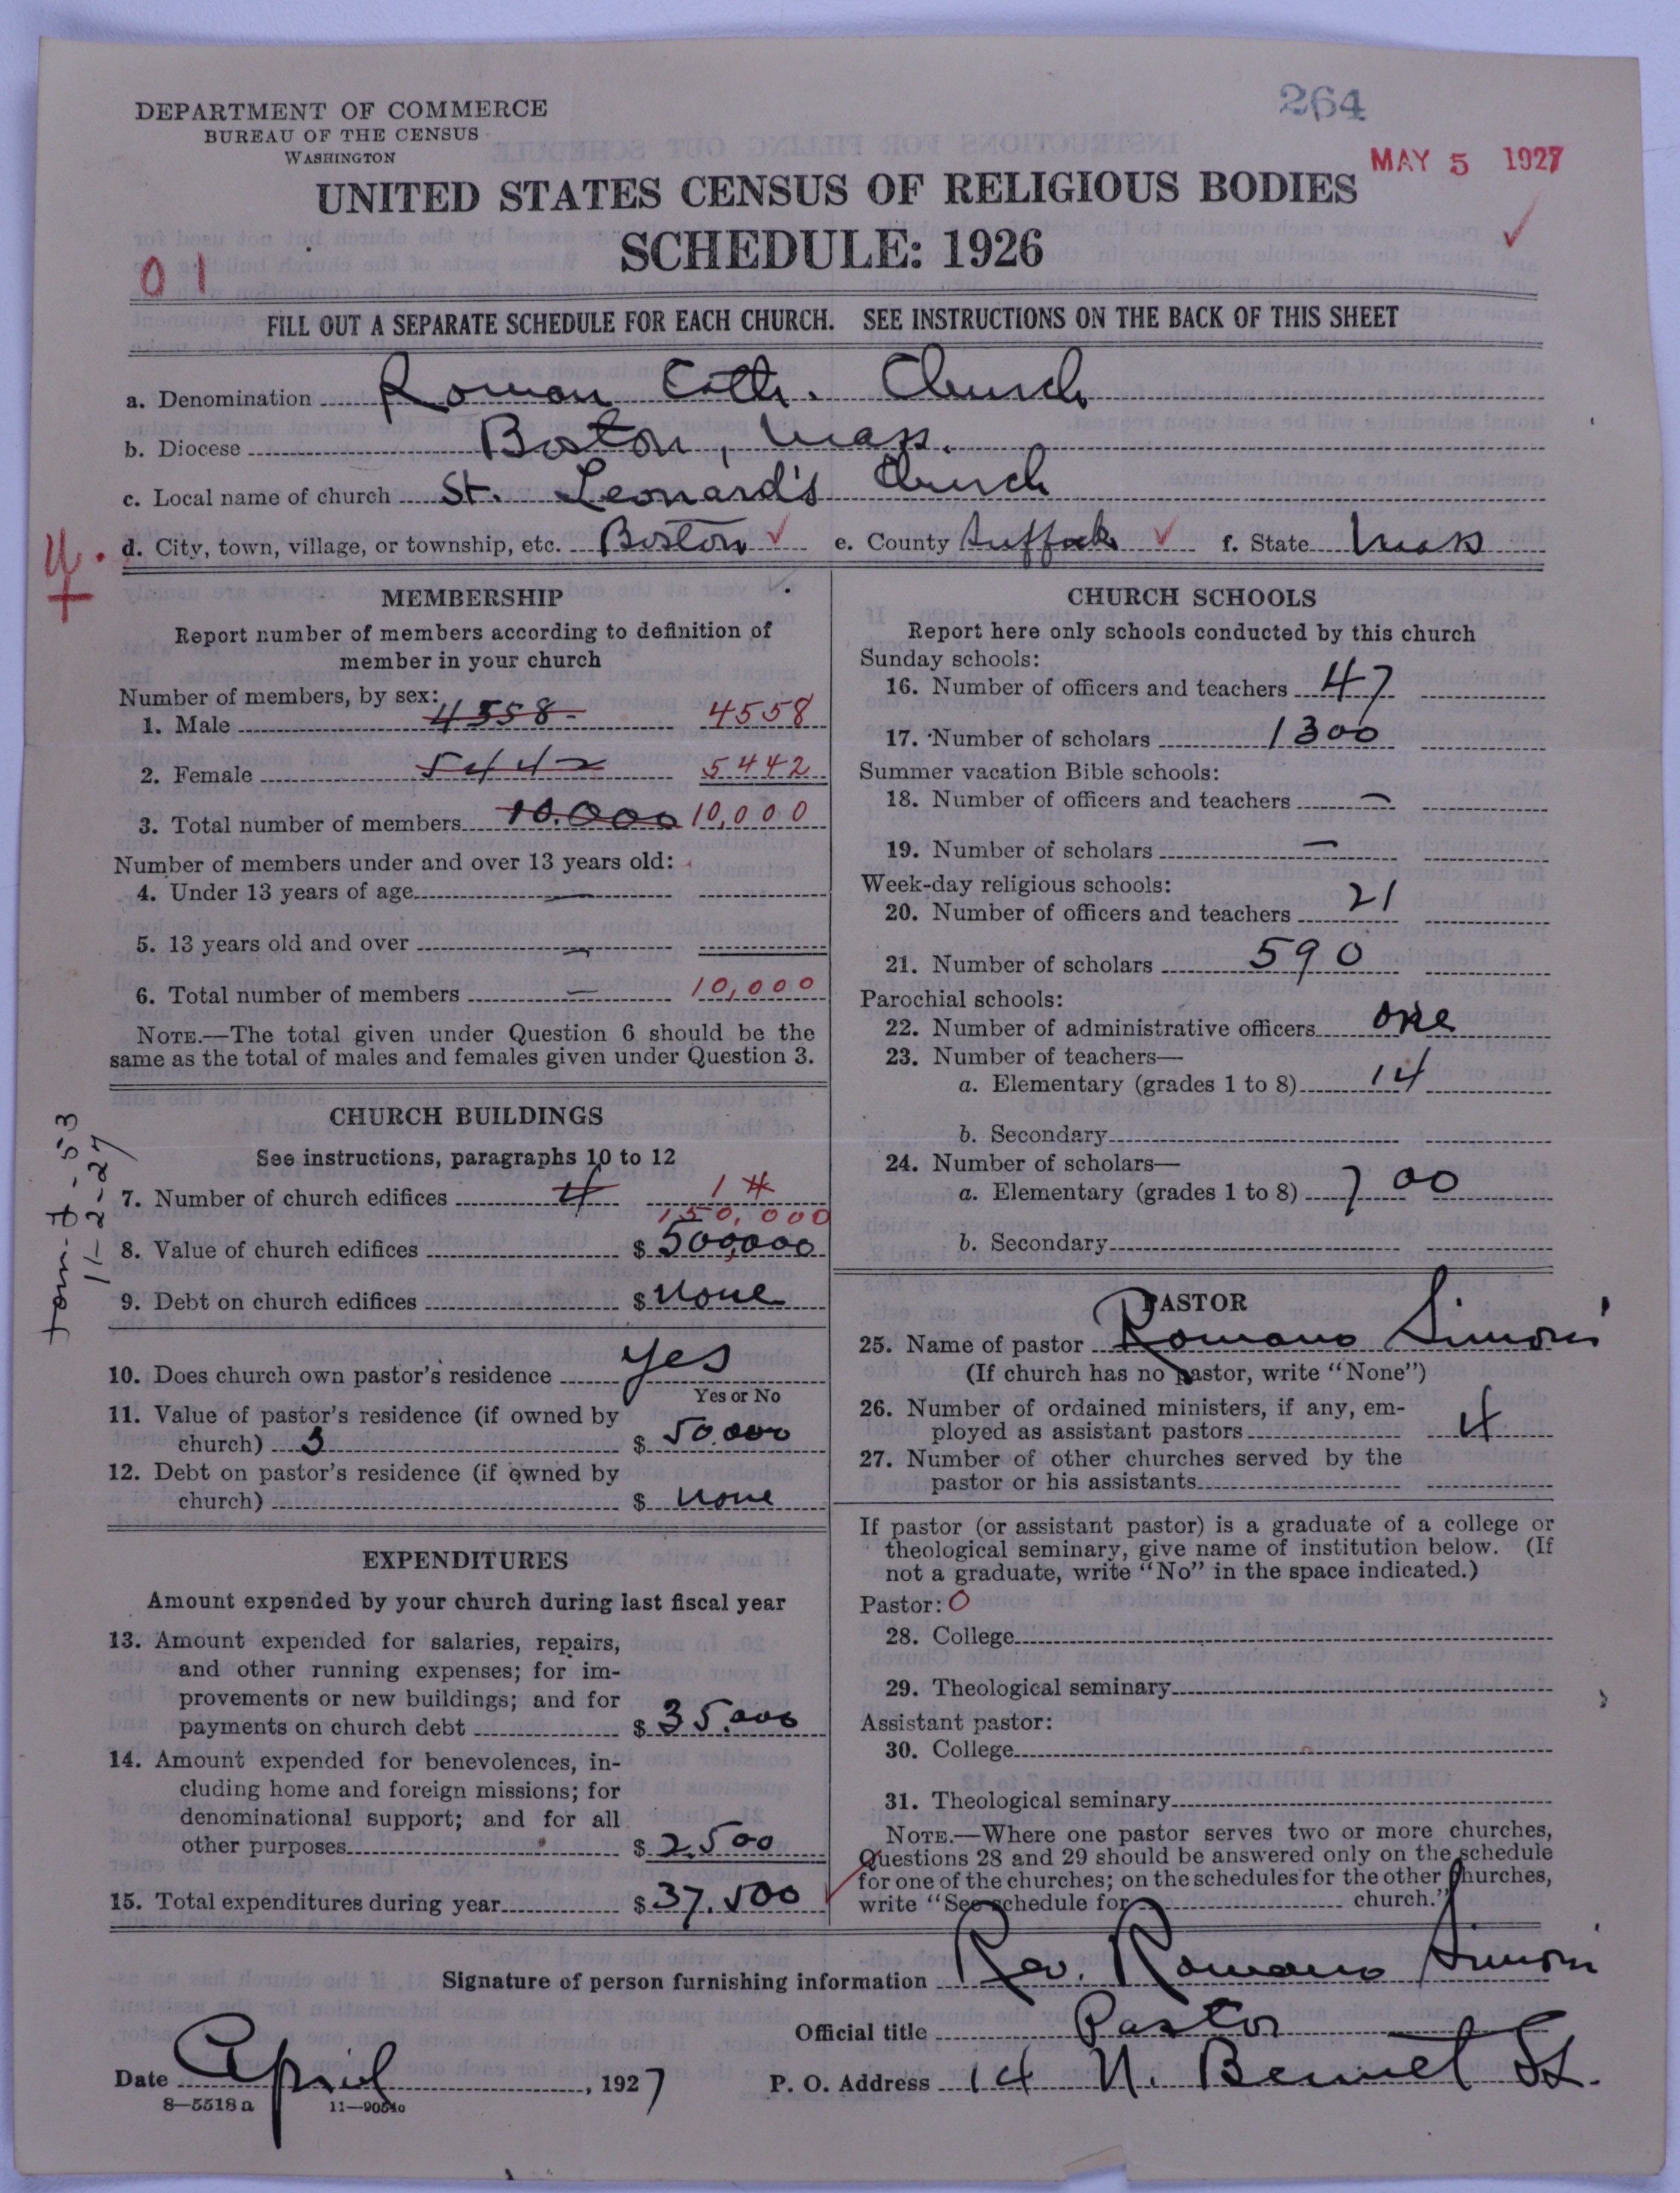 264
DEPARTMENT OF COMMERCE
BUREAU OF THE CENSUS
WASHINGTON
MAY 5 1927
UNITED STATES CENSUS OF RELIGIOUS BODIES
SCHEDULE: 1926
01
FILL OUT A SEPARATE SCHEDULE FOR EACH CHURCH. SEE INSTRUCTIONS ON THE BACK OF THIS SHEET
a. Denomination Roman Cath. Church
b. Diocese Boston, Mass.
c. Local name of church St. Leonard's Church
d. City, town, village, or township, etc. Boston ✓ e. County Suffolk ✓ f. State Mass
MEMBERSHIP
Report number of members according to definition of
member in your church
Number of members, by sex:
1. Male 4558 4558
2. Female 5442 5442
3. Total number of members 10.000 10,000
Number of members under and over 13 years old:
4. Under 13 years of age —
5. 13 years old and over —
6. Total number of members — 10,000
NOTE.—The total given under Question 6 should be the
same as the total of males and females given under Question 3.
CHURCH BUILDINGS
See instructions, paragraphs 10 to 12
7. Number of church edifices 4 1 4
150,000
8. Value of church edifices $ 500,000
9. Debt on church edifices $ none
10. Does church own pastor's residence yes
Yes or No
11. Value of pastor's residence (if owned by
church) 3 $ 50.000
12. Debt on pastor's residence (if owned by
church) $ none
11-2-27
EXPENDITURES
Amount expended by your church during last fiscal year
13. Amount expended for salaries, repairs,
and other running expenses; for im-
provements or new buildings; and for
payments on church debt $ 35.000
14. Amount expended for benevolences, in-
cluding home and foreign missions; for
denominational support; and for all
other purposes $ 2500
15. Total expenditures during year $ 37.500
CHURCH SCHOOLS
Report here only schools conducted by this church
Sunday schools:
16. Number of officers and teachers 47
17. Number of scholars 1300
Summer vacation Bible schools:
18. Number of officers and teachers —
19. Number of scholars —
Week-day religious schools:
20. Number of officers and teachers 21
21. Number of scholars 590
Parochial schools:
22. Number of administrative officers one
23. Number of teachers—
a. Elementary (grades 1 to 8) 14
b. Secondary
24. Number of scholars—
a. Elementary (grades 1 to 8) 700
b. Secondary
PASTOR
25. Name of pastor Romano Simoni
(If church has no pastor, write "None")
26. Number of ordained ministers, if any, em-
ployed as assistant pastors 4
27. Number of other churches served by the
pastor or his assistants
If pastor (or assistant pastor) is a graduate of a college or
theological seminary, give name of institution below. (If
not a graduate, write "No" in the space indicated.)
Pastor: 0
28. College
29. Theological seminary
Assistant pastor:
30. College
31. Theological seminary
NOTE.—Where one pastor serves two or more churches,
Questions 28 and 29 should be answered only on the schedule
for one of the churches; on the schedules for the other churches,
write "See schedule for church."
Signature of person furnishing information Rev. Romano Simoni
Official title Pastor
Date April, 1927 P. O. Address 14 N. Bennet St.
8—5518 a 11—9054c